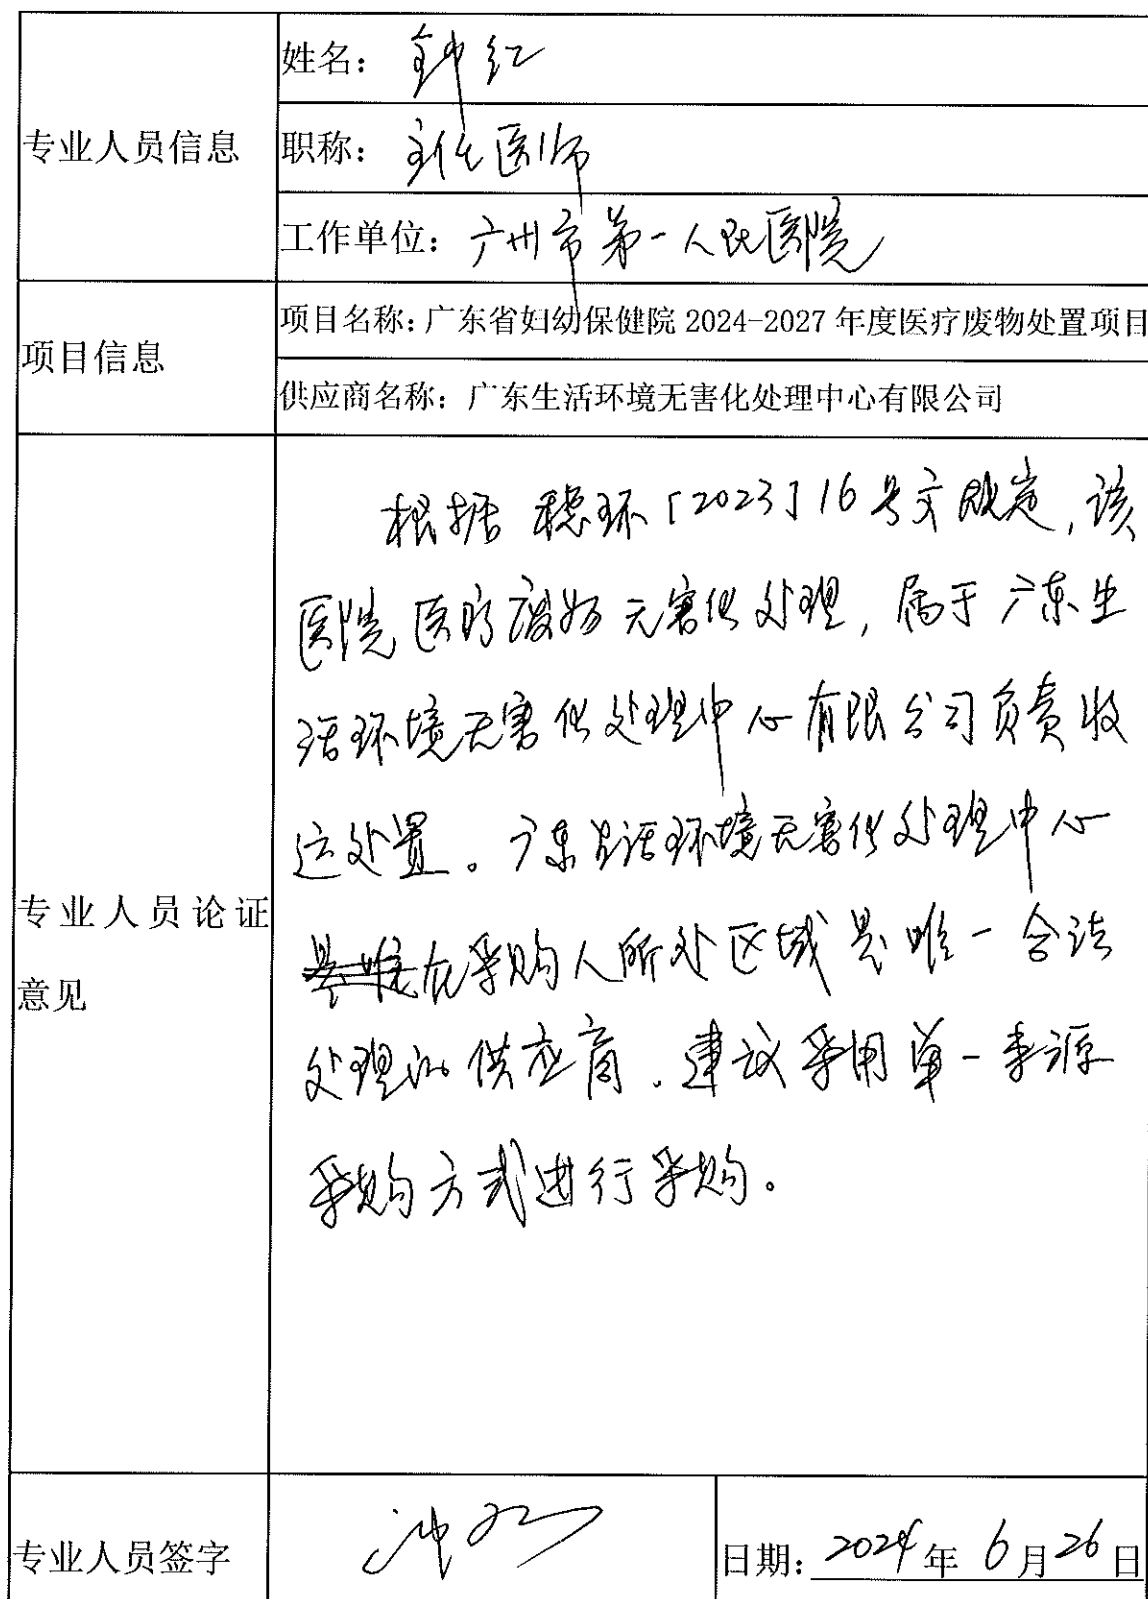 专业人员信息
姓名：钟红
职称：主任医师
工作单位：广州市第一人民医院
项目信息
项目名称：广东省妇幼保健院 2024-2027 年度医疗废物处置项目
供应商名称：广东生活环境无害化处理中心有限公司
专业人员论证
意见
根据 穗环［2023］16号文规定，该
医院医疗废物无害化处理，属于广东生
活环境无害化处理中心有限公司负责收
运处置。广东生活环境无害化处理中心
在采购人所处区域是唯一合法
处理的供应商，建议采用单一来源
采购方式进行采购。
专业人员签字
日期：2024年6月26日